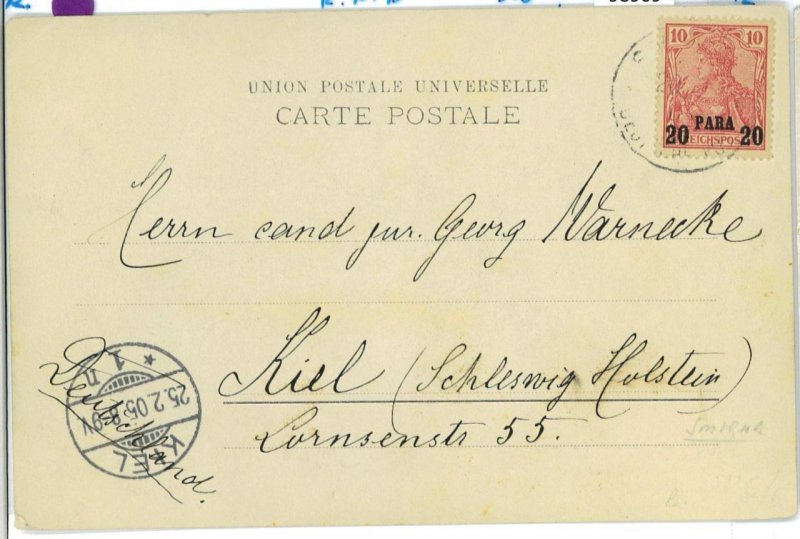 UNION POSTALE UNIVERSELLE
CARTE POSTALE
10 10
PARA
20 20
REICHSPOST
Herrn cand jur. Georg Warnecke
Kiel (Schleswig Holstein)
Lornsenstr 55.
Deutschland.
KIEL
25.2.05.8-9V
* 1 n
Smyrna